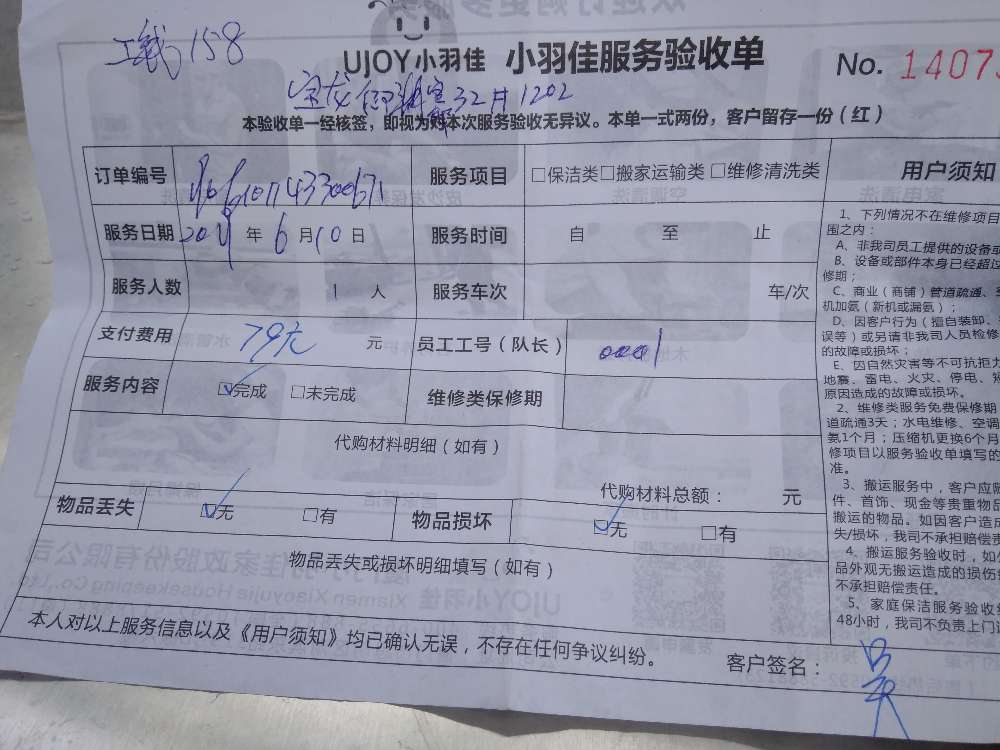 158
UJOY小羽佳 小羽佳服务验收单 No. 1407
32 1202
本验收单一经核签，即视为对本次服务验收无异议。本单一式两份，客户留存一份（红）
订单编号 服务项目 □保洁类□搬家运输类□维修清洗类
服务日期 年 6 月 10 日 服务时间 自 至 止
服务人数 1 人 服务车次 车/次
支付费用 79元 元 员工工号（队长） 0001
服务内容 ☑完成 □未完成 维修类保修期
代购材料明细（如有）
代购材料总额： 元
物品丢失 ☑无 □有 物品损坏 ☑无 □有
物品丢失或损坏明细填写（如有）
本人对以上服务信息以及《用户须知》均已确认无误，不存在任何争议纠纷。
客户签名：
用户须知
1、下列情况不在维修项目
围之内：
A、非我司员工提供的设备或
B、设备或部件本身已经超过
修期；
C、商业（商铺）管道疏通、
机加氨（新机或漏氨）；
D、因客户行为（擅自装卸、
误等）或另请非我司人员检修
的故障或损坏；
E、因自然灾害等不可抗拒力
地震、雷电、火灾、停电、
原因造成的故障或损坏。
2、维修类服务免费保修期
道疏通3天；水电维修、空调
氨1个月；压缩机更换6个月
修项目以服务验收单填写的
准。
3、搬运服务中，客户应
件、首饰、现金等贵重物品
搬运的物品。如因客户造成
失/损坏，我司不承担赔偿责
4、搬运服务验收时，如
品外观无搬运造成的损伤
不承担赔偿责任。
5、家庭保洁服务验收
48小时，我司不负责上门